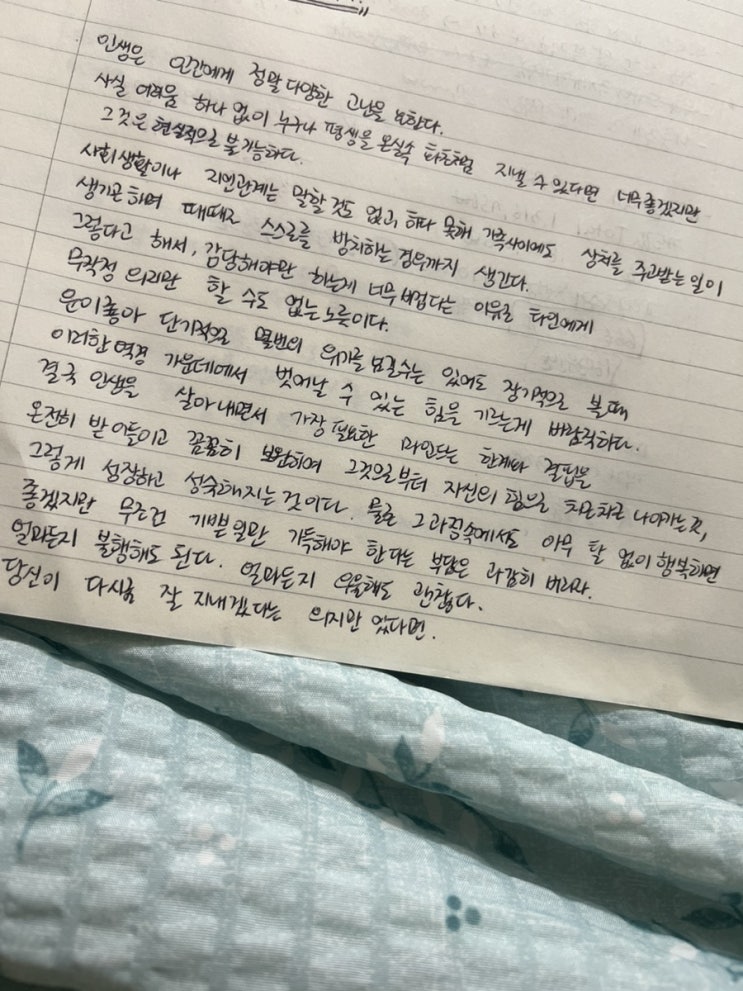 인생은 인간에게 정말 다양한 고난을 요한다.
사실 어려움 하나 없이 누구나 평생을 온실속 화초처럼 지낼 수 있다면 너무 좋겠지만
그것은 현실적으로 불가능하다.
사회생활이나 지인관계는 말할 것도 없고, 하다 못해 가족사이에도 상처를 주고받는 일이
생기곤 하며 때때로 스스로를 방치하는 경우까지 생긴다.
그렇다고 해서, 감당해야만 하는게 너무 버겁다는 이유로 타인에게
무작정 의지만 할 수도 없는 노릇이다.
운이 좋아 단기적으로 몇번의 위기를 넘길수는 있어도 장기적으로 볼 때
이러한 역경 가운데에서 벗어날 수 있는 힘을 기르는게 바람직하다.
결국 인생을 살아내면서 가장 필요한 마인드는 한계와 결핍을
온전히 받아들이고 꼼꼼히 보완하여 그것으로부터 자신의 힘으로 차근차근 나아가는 것,
그렇게 성장하고 성숙해지는 것이다. 물론 그 과정속에서도 아무 탈 없이 행복하면
좋겠지만 무조건 기쁜 일만 가득해야 한다는 부담은 과감히 버리자.
얼마든지 불행해도 된다. 얼마든지 우울해도 괜찮다.
당신이 다시금 잘 지내겠다는 의지만 있다면.